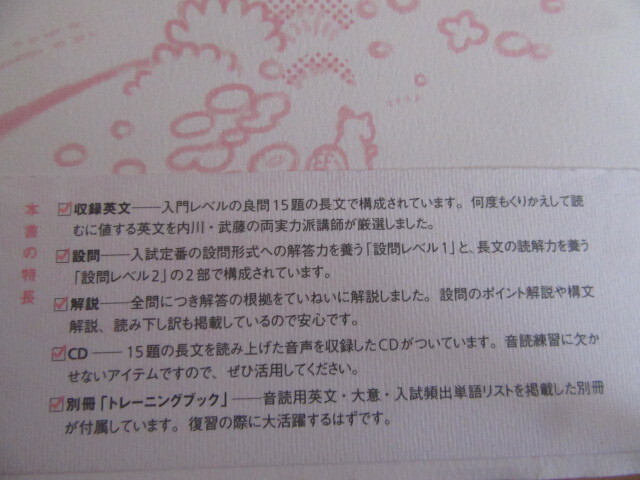 本書の特長
収録英文――入門レベルの良問15題の長文で構成されています。何度もくりかえして読
むに値する英文を内川・武藤の両実力派講師が厳選しました。
設問――入試定番の設問形式への解答力を養う「設問レベル1」と、長文の読解力を養う
「設問レベル2」の2部で構成されています。
解説――全問につき解答の根拠をていねいに解説しました。設問のポイント解説や構文
解説、読み下し訳も掲載しているので安心です。
CD――15題の長文を読み上げた音声を収録したCDがついています。音読練習に欠か
せないアイテムですので、ぜひ活用してください。
別冊「トレーニングブック」――音読用英文・大意・入試頻出単語リストを掲載した別冊
が付属しています。復習の際に大活躍するはずです。